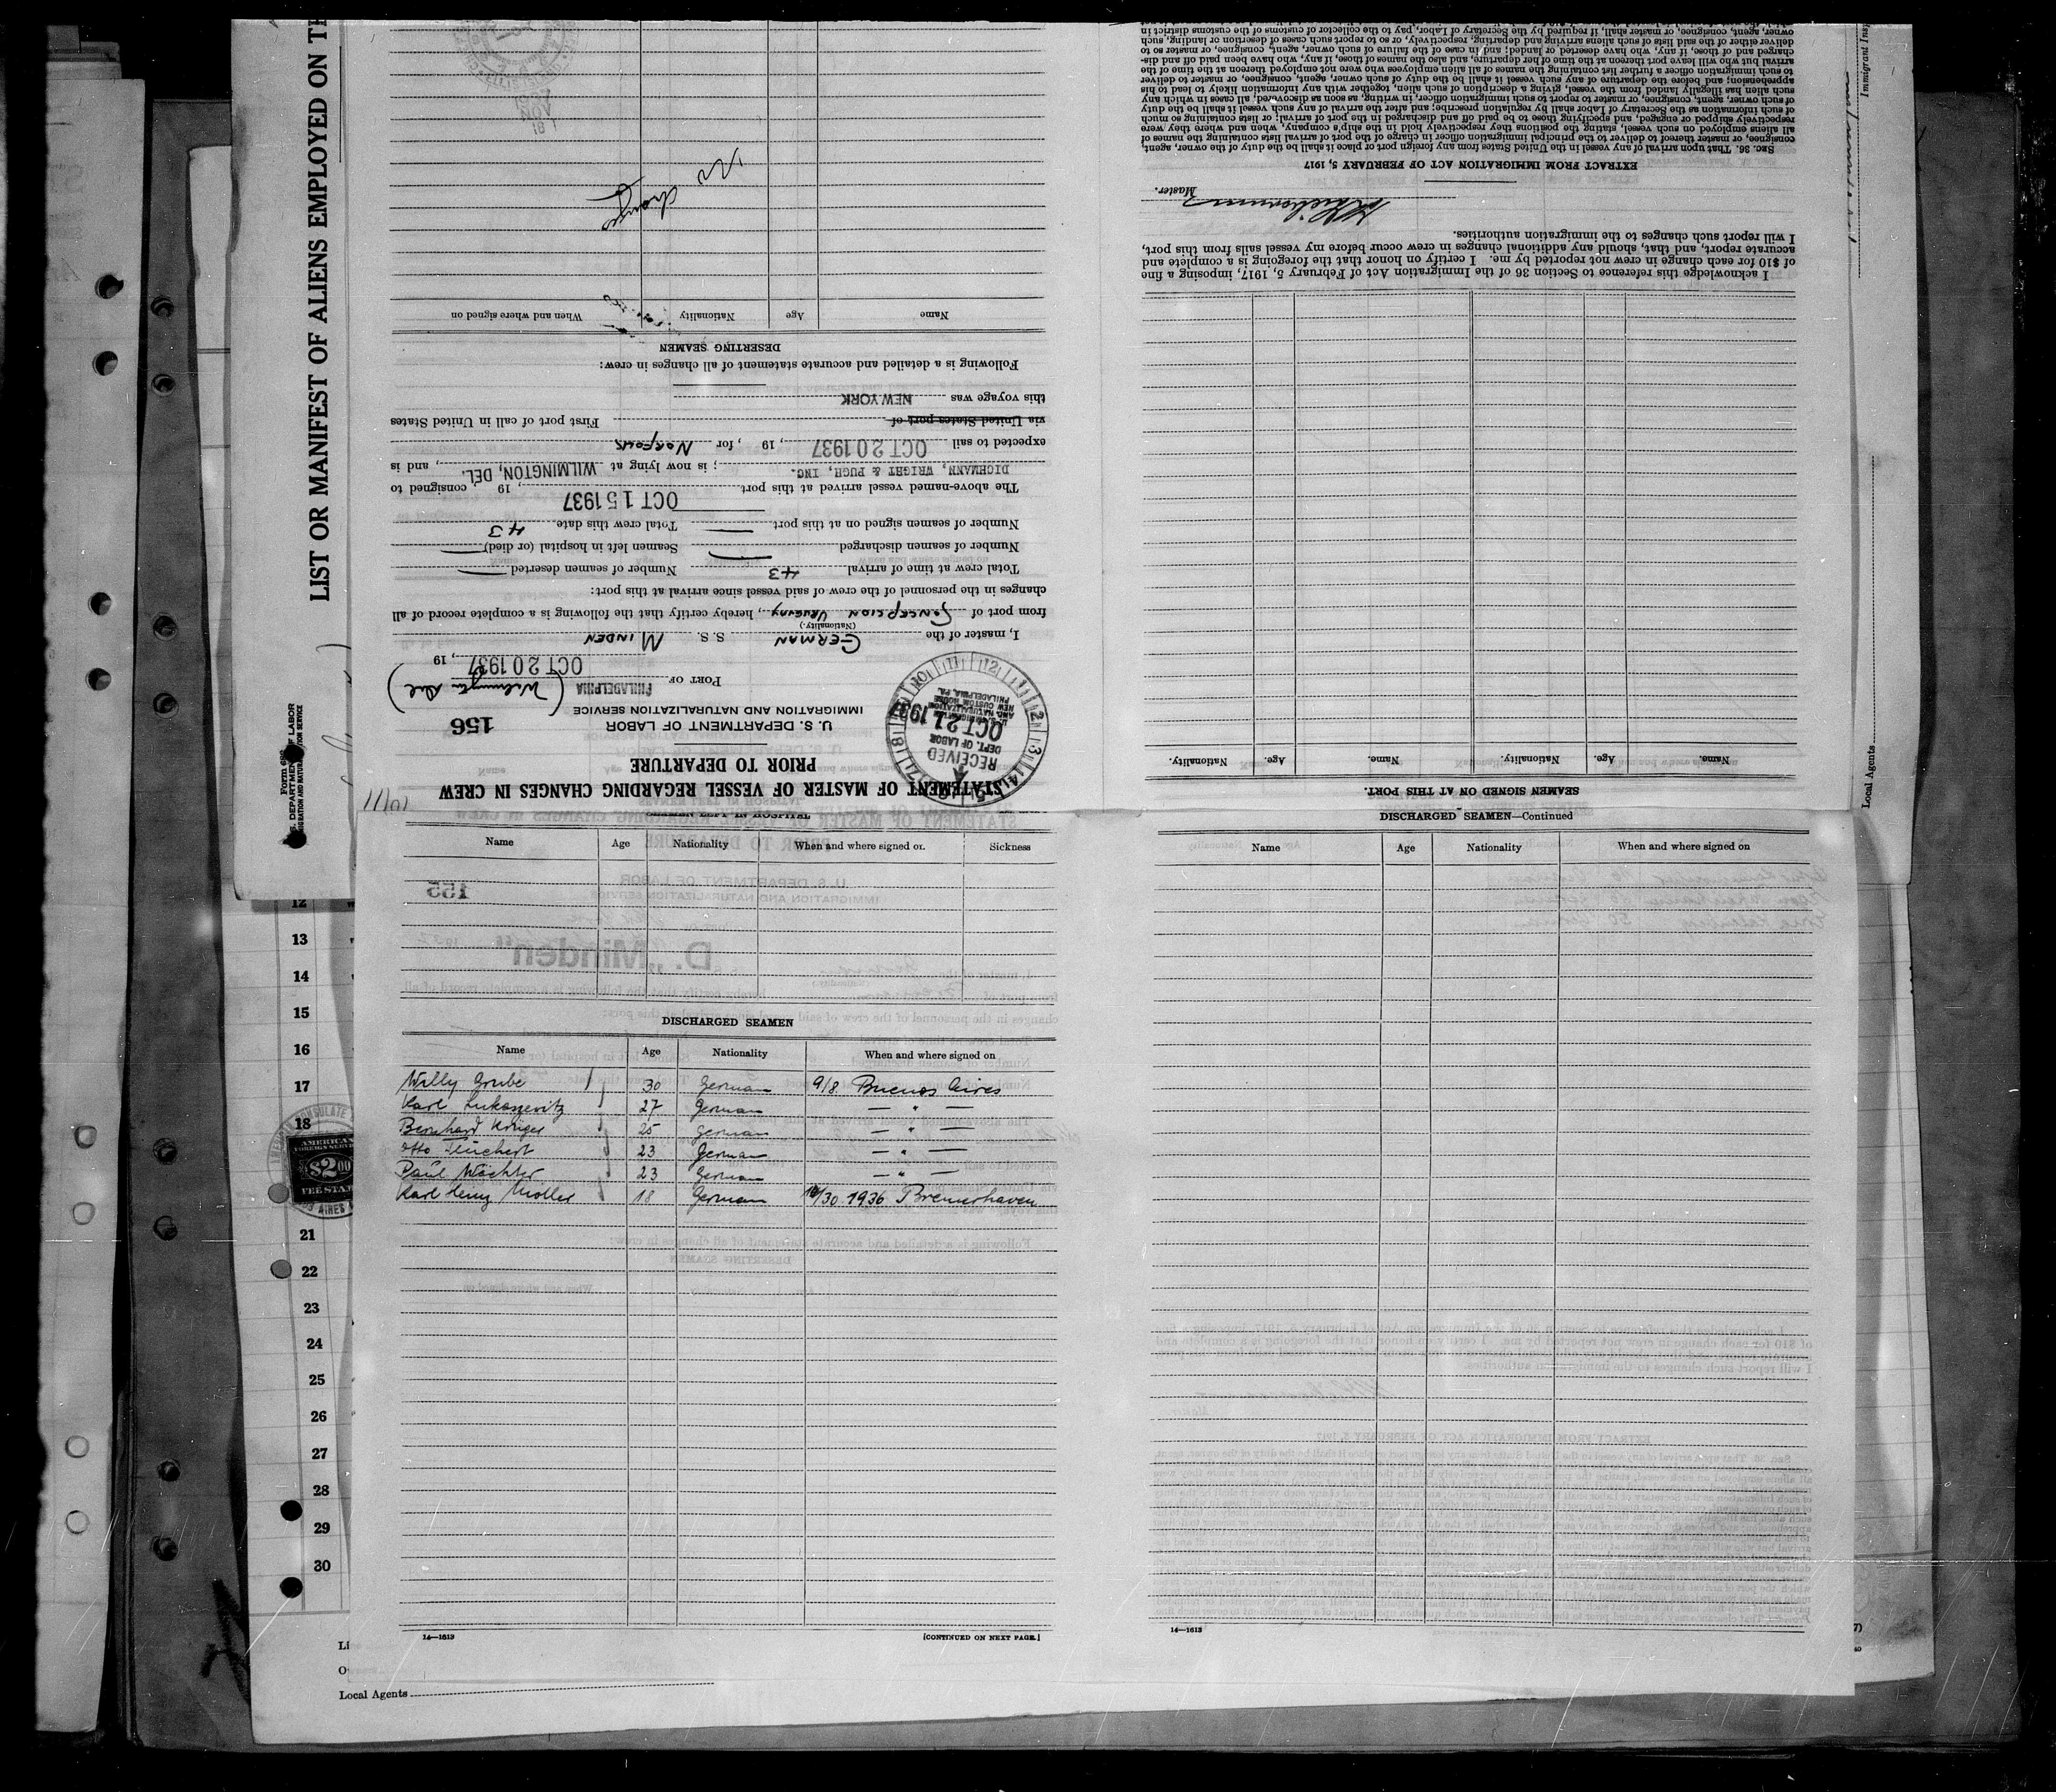 LIST OR MANIFEST OF ALIENS EMPLOYED ON TH
Form 68
DEPARTMEN OF LABOR
STATEMENT OF MASTER OF VESSEL REGARDING CHANGES IN CREW
PRIOR TO DEPARTURE
U. S. DEPARTMENT OF LABOR
156
IMMIGRATION AND NATURALIZATION SERVICE
RECEIVED
DEPT. OF LABOR
OCT 21 1937
NEW CUSTOM HOUSE
PHILADELPHIA, PA.
PORT OF PHILADELPHIA (Wilmington Del)
OCT 20 1937, 19
I, master of the GERMAN S. S. MINDEN
(Nationality.)
from port of CONCEPCION URUGUAY, hereby certify that the following is a complete record of all
changes in the personnel of the crew of said vessel since arrival at this port:
Total crew at time of arrival 43 Number of seamen deserted —
Number of seamen discharged — Seamen left in hospital (or died) —
Number of seamen signed on at this port — Total crew this date 43
The above-named vessel arrived at this port OCT 15 1937, 19 , consigned to
DICHMANN, WRIGHT & PUGH, INC. ; is now lying at WILMINGTON, DEL., and is
expected to sail OCT 20 1937, 19 , for NORFOLK
via United States port of First port of call in United States
this voyage was NEW YORK
Following is a detailed and accurate statement of all changes in crew:
DESERTING SEAMEN
Name Age Nationality When and where signed on
No change
SEAMEN SIGNED ON AT THIS PORT.
Name. Age. Nationality. Name. Age. Nationality.
I acknowledge this reference to Section 36 of the Immigration Act of February 5, 1917, imposing a fine
of $10 for each change in crew not reported by me. I certify on honor that the foregoing is a complete and
accurate report, and that, should any additional changes in crew occur before my vessel sails from this port,
I will report such changes to the immigration authorities.
Master.
EXTRACT FROM IMMIGRATION ACT OF FEBRUARY 5, 1917
SEC. 36. That upon arrival of any vessel in the United States from any foreign port or place it shall be the duty of the owner, agent,
consignee, or master thereof to deliver to the principal immigration officer in charge of the port of arrival lists containing the names of
all aliens employed on such vessel, stating the positions they respectively hold in the ship's company, when and where they were
respectively shipped or engaged, and specifying those to be paid off and discharged in the port of arrival; or lists containing so much
of such information as the Secretary of Labor shall by regulation prescribe; and after the arrival of any such vessel it shall be the duty
of such owner, agent, consignee, or master to report to such immigration officer, in writing, as soon as discovered, all cases in which any
such alien has illegally landed from the vessel, giving a description of such alien, together with any information likely to lead to his
apprehension; and before the departure of any such vessel it shall be the duty of such owner, agent, consignee, or master to deliver
to such immigration officer a further list containing the names of all alien employees who were not employed thereon at the time of the
arrival but who will leave port thereon at the time of her departure, and also the names of those, if any, who have been paid off and dis-
charged and of those, if any, who have deserted or landed; and in case of the failure of such owner, agent, consignee, or master so to
deliver either of the said lists of such aliens arriving and departing, respectively, or so to report such cases of desertion or landing, such
owner, agent, consignee, or master shall, if required by the Secretary of Labor, pay to the collector of customs of the customs district in
Local Agents
Immigrant Insp
SEAMEN LEFT IN HOSPITAL
Name Age Nationality When and where signed on Sickness
155
D. „Minden"
DISCHARGED SEAMEN
Name Age Nationality When and where signed on
Willy Grube 30 German 9/8 Buenos Aires
Karl Lukaszevitz 27 German — " —
Bernhard Krüger 25 German — " —
Otto Teuchert 23 German — " —
Paul Wächter 23 German — " —
Karl Heinz Müller 18 German 10/30 1936 Bremerhaven
14—1613
[CONTINUED ON NEXT PAGE.]
DISCHARGED SEAMEN—Continued
Name Age Nationality When and where signed on
14—1613
12
13
14
15
16
17
18
AMERICAN
FOREIGN SERVICE
$2.00
FEE STA
21
22
23
24
25
26
27
28
29
30
Local Agents